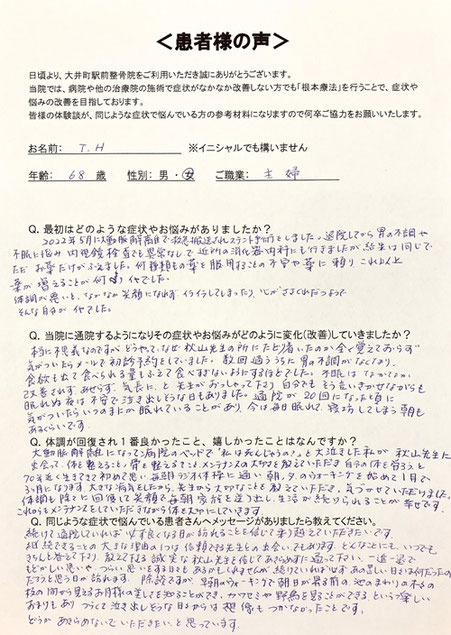 ＜患者様の声＞
日頃より、大井町駅前整骨院をご利用いただき誠にありがとうございます。
当院では、病院や他の治療院の施術で症状がなかなか改善しない方でも「根本療法」を行うことで、症状や
悩みの改善を目指しております。
皆様の体験談が、同じような症状で悩んでいる方の参考材料になりますので何卒ご協力をお願いいたします。
お名前： T.H ※イニシャルでも構いません
年齢： 68 歳 性別：男・女 ご職業： 主婦
Q. 最初はどのような症状やお悩みがありましたか？
2022年5月に大動脈解離で救急搬送されステント手術をしました。退院してから胃の不調や
不眠に悩み 内視鏡検査でも異常なしで 近所の消化器内科にも行きましたが 結果は同じで
ただ お薬だけがふえました。何種類もの薬を服用することの不安や薬に頼り これ以上
薬が増えることが何より
体調が悪いと、なかなか笑顔になれず イライラしてしまったり、心がささくれだつようで
そんな自分がイヤでした。
Q. 当院に通院するようになりその症状やお悩みがどのように変化(改善)していきましたか？
本当に不思議なのですが どうやって、なぜ 秋山先生の所にたどり着いたのか全く覚えておらず
気がついたらメールで初診予約をしていました。数回通ううちに 胃の不調がなくなり
食欲も出て 食べられる量もふえて 食べすぎないようにするほどでした。不眠は なかなか
改善されず あせらず 気長に、と 先生がおっしゃって下さり 自分でも そう言いきかせながらも
眠れぬ夜は不安で泣き出しそうな日もありました。通院が20回になった頃に
気がついたらいつのまにか眠れていることがあり 今は毎日眠れて 寝坊してしまう朝も
あるくらいです。
Q. 体調が回復され１番良かったこと、嬉しかったことはなんですか？
大動脈解離になって病院のベッドで「私は死んじゃうの?」と大泣きした私が 秋山先生に
出会って、体を整えること、骨を整えること、メンテナンスの大切さを教えていただき 自分の体を
70年近く生きてきて初めて思い、毎朝ラジオ体操に通い、朝、夕のウォーキングを始めて1日で
3ヶ月になります 大きな病気をしたから、先生から大切なことを教えていただき、気づかせていただきました。
体調も徐々に回復して 笑顔で毎朝家族を送り出し、生活が続けられることが 幸せです。
これからもメンテナンスをしていただきながら体を大切にしていきます
Q. 同じような症状で悩んでいる患者さんへメッセージがありましたら教えてください。
続けて通院していれば 必ず良くなる日が訪れることを信じて乗り越えていただきたいです。
継続できることの 大きな理由の1つは 信頼できる先生との出会いでもあります。どんなことにも、いつでも
きちんと答えて下さり 教えて下さる誠実な 秋山先生を信じてあきらめずに 通って下さい。一進一退で
もどかしい思いや、つらい思いをする日もあるかもしれませんが 続けていれば必ず あの苦しい日々は何だったの
だろうと思う日が訪れます。 余談ですが、早朝のウォーキングで朝日が昇る前の池のまわりの木々の
枝の間から見える お月様の美しさを知ることができ、カワセミや野鳥を見ることができる という楽しい
おまけもあり つらくて泣き出しそうな日々からは 想像もつかなかったことです。
どうか あきらめないでいただきたいと思っています。